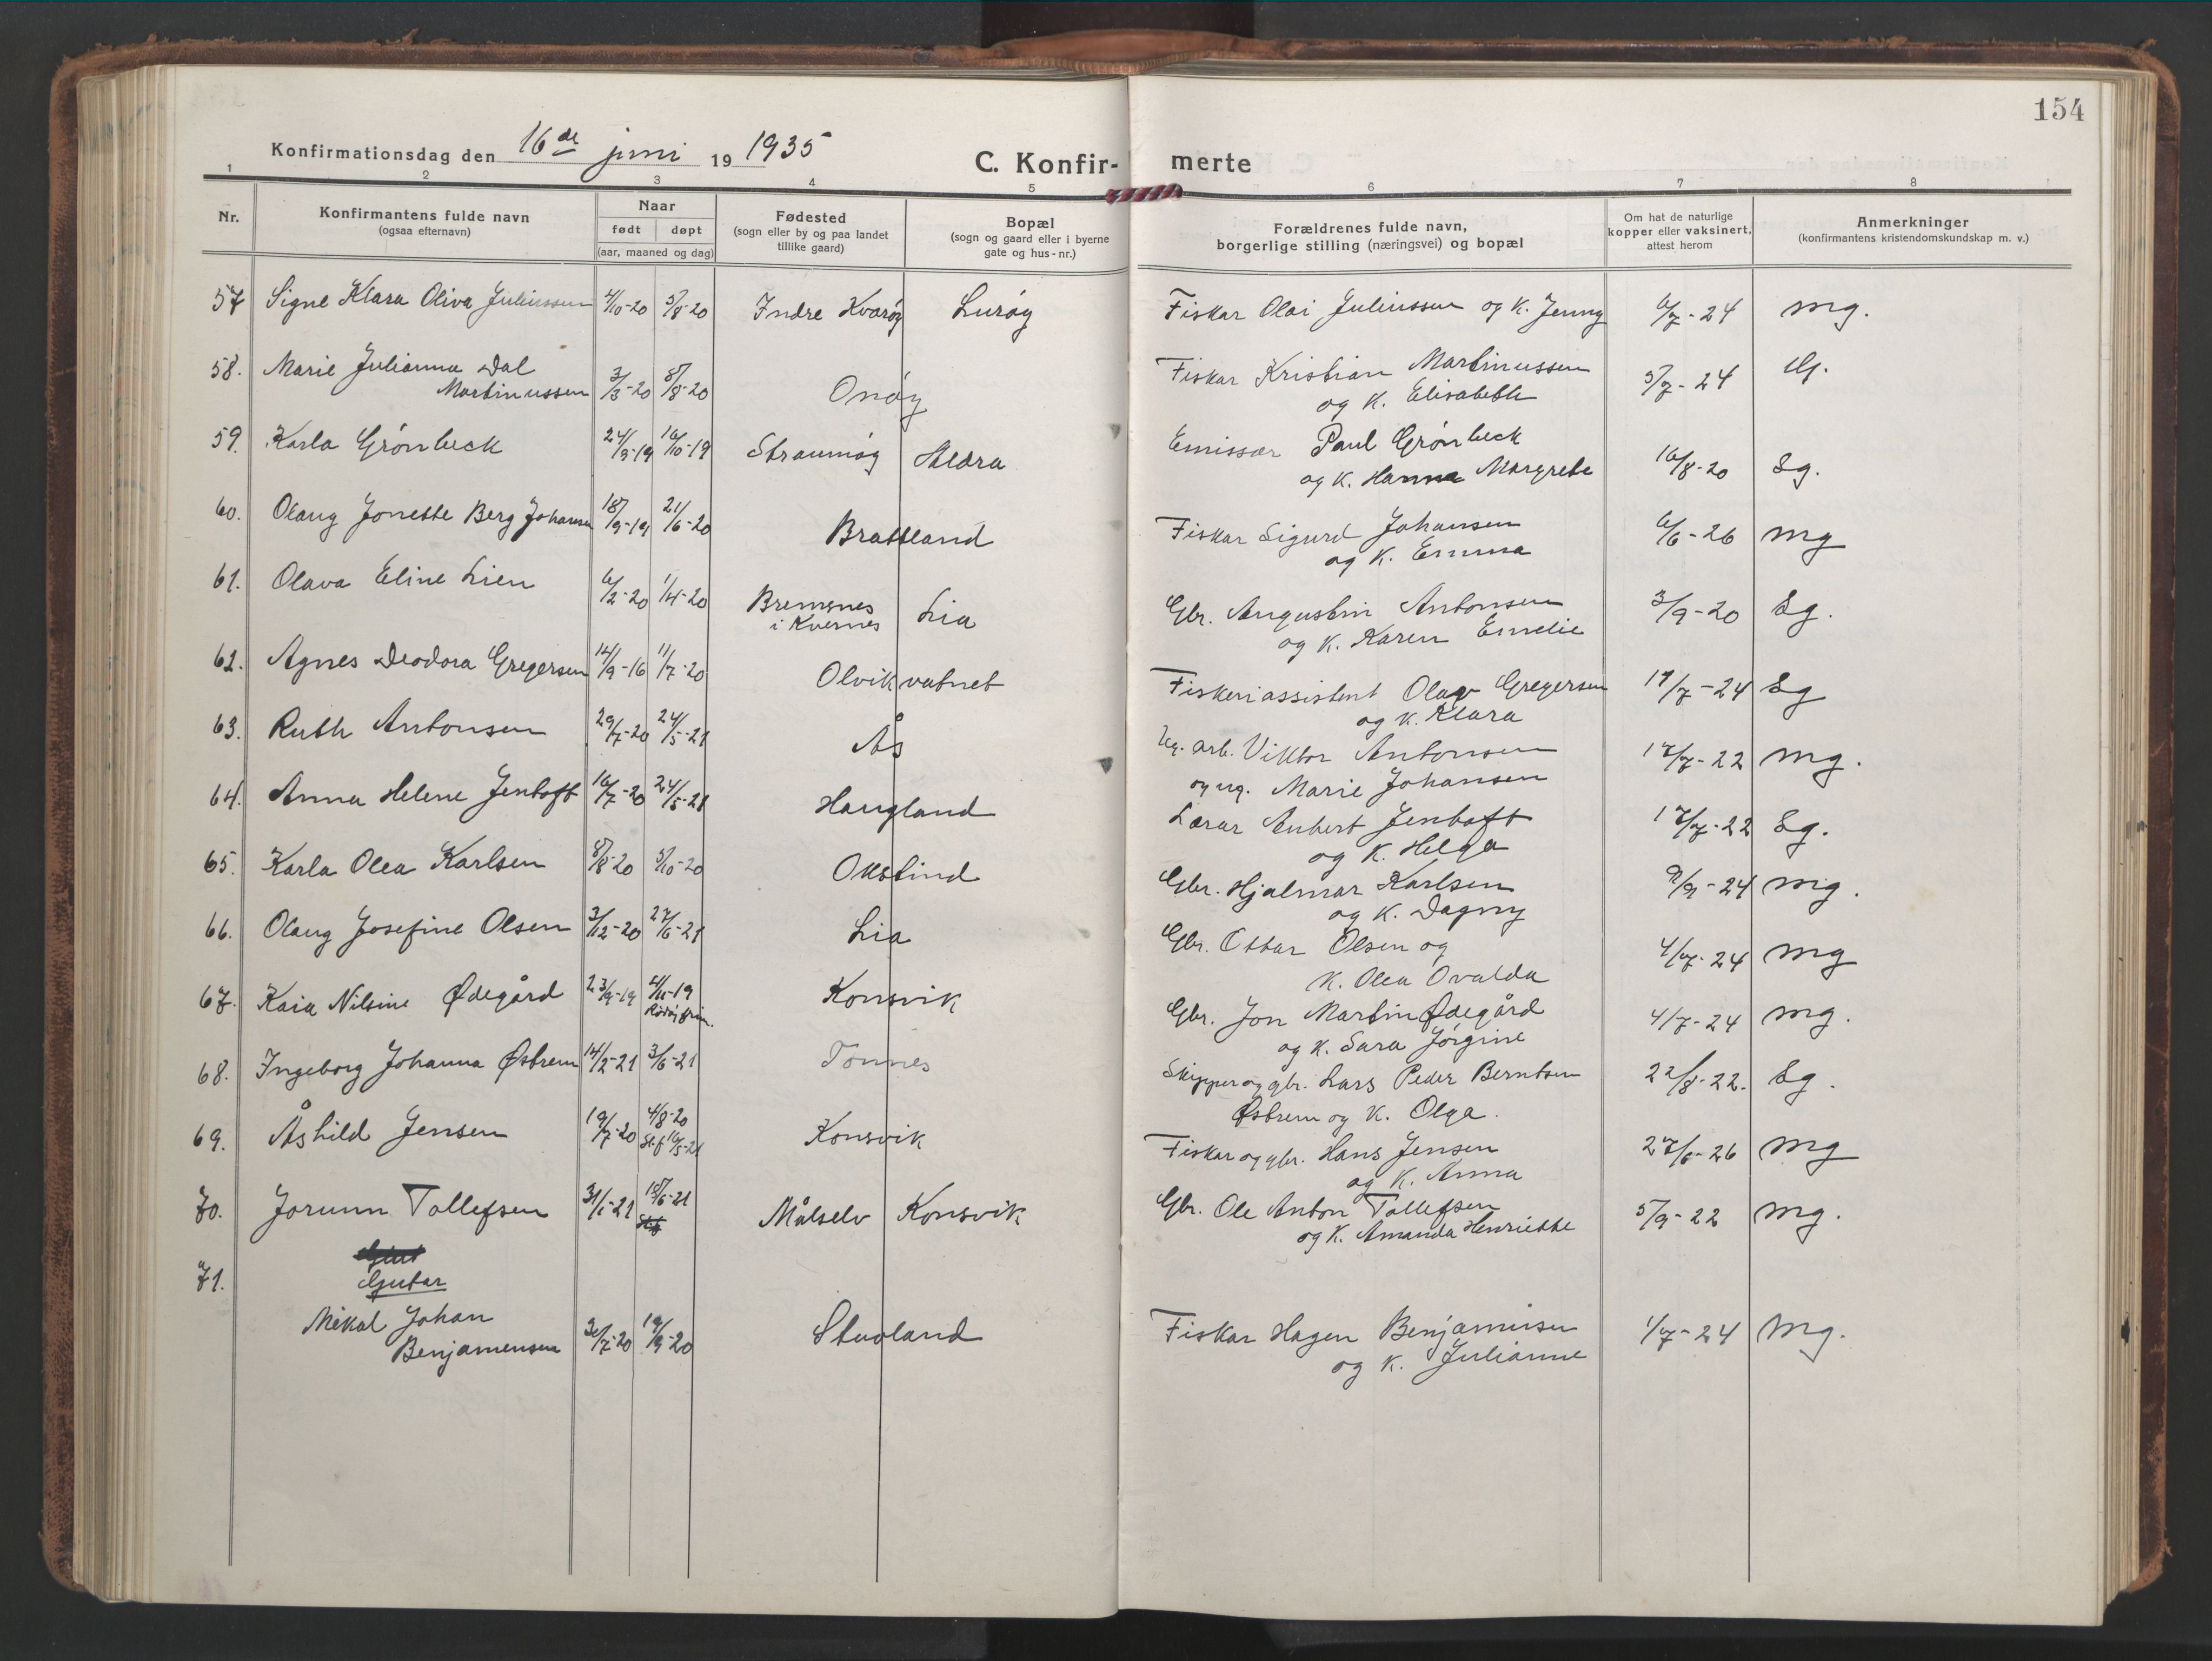 154
Konfirmationsdag den 16de juni 19 1935
C. Konfir- merte
1 2 3 4 5 6 7 8
Nr.
Konfirmantens fulde navn
(ogsaa efternavn)
Naar
født døpt
(aar, maaned og dag)
Fødested
(sogn eller by og paa landet
tillike gaard)
Bopæl
(sogn og gaard eller i byerne
gate og hus-nr.)
Forældrenes fulde navn,
borgerlige stilling (næringsvei) og bopæl
Om hat de naturlige
kopper eller vaksinert,
attest herom
Anmerkninger
(konfirmantens kristendomskundskap m. v.)
57 Signe Klara Oliva Juliussen 4/10-20 5/8-20 Indre Kvarøy Lurøy Fiskar Olai Juliussen og k. Jenny 6/7-24 mg.
58. Marie Julianna Dal
Martinussen 3/3-20 8/8-20 Onøy Fiskar Kristian Martinussen
og k. Elisabeth 5/7-24 g.
59. Karla Grönbeck 24/9-19 16/10-19 Straumøy Aldra Emissær Paul Grönbeck
og k. Hanna Margrete 16/8-20 Sg.
60. Olaug Jonette Berg Johansen 18/9-19 21/6-20 Brattland Fiskar Sigurd Johansen
og k. Emma 6/6-26 mg
61. Olava Eline Lien 6/2-20 1/4-20 Bremsnes
i Kvernes Lia Gbr. Augustin Antonsen
og k. Karen Emelie 3/9-20 Sg.
62. Agnes Deodora Gregersen 14/9-16 11/7-20 Olvikvatnet Fiskeriassistent Olav Gregersen
og k. Klara 19/7-24 Sg
63. Ruth Antonsen 29/7-20 24/5-21 Ås Ug. arb. Viktor Antonsen
og ug. Marie Johansen 17/7-22 mg.
64. Anna Helene Jentoft 16/7-20 24/5-21 Haugland Lærar Anbert Jentoft
og k. Helga 17/7-22 Sg.
65. Karla Olea Karlsen 8/8-20 5/10-20 Okstind Gbr. Hjalmar Karlsen
og k. Dagny 9/9-24 mg.
66. Olaug Josefine Olsen 3/12-20 27/6-21 Lia Gbr. Ottar Olsen og
k. Olea Ovalda 4/7-24 mg
67. Kaia Nilsine Ødegård 23/9-19 4/11-19 Konsvik Gbr. Jon Martin Ødegård
og k. Sara Jörgine 4/7-24 mg.
68. Ingeborg Johanna Østrem 14/2-21 3/6-21 Tonnes Skipper og gbr. Lars Peder Berntsen
Østrem og k. Olga. 22/8-22. Sg.
69. Åshild Jensen 19/7-20 4/8-20
St.f 16/5-21 Konsvik Fiskar og gbr. Hans Jensen
og k. Anna 27/6-26 mg
70. Jorunn Tollefsen 31/1-21 18/6-21 Målselv Konsvik Gbr. Ole Anton Tollefsen
og k. Amanda Henriette 5/9-22 mg.
Gjutar
71. Mikal Johan
Benjaminsen 30/7-20 19/9-20 Stuvland Fiskar Hagen Benjaminsen
og k. Julianne 1/7-24 mg.